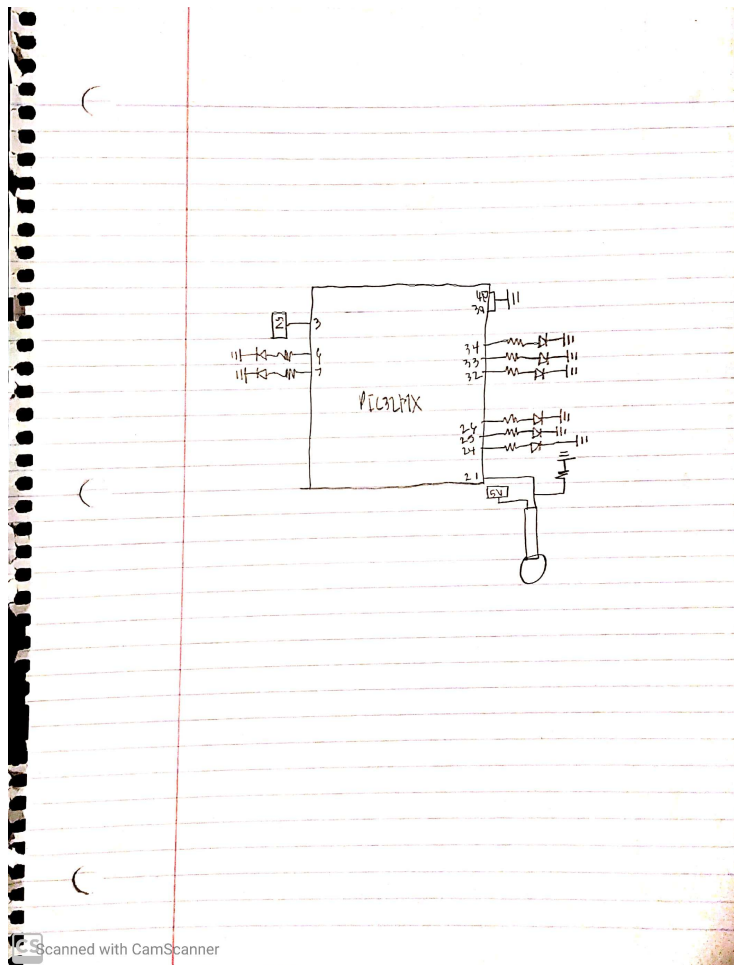 40
39
3
34
6
33
7
32
PIC32MX
26
25
24
21
5V
5V
CS Scanned with CamScanner